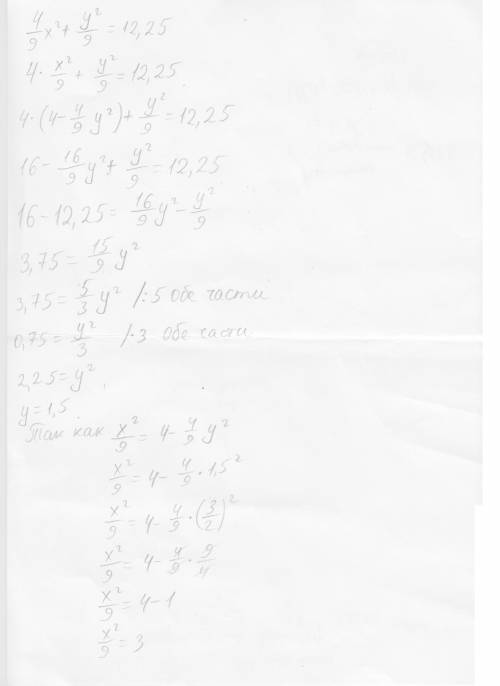 4/9 x² + y²/9 = 12,25
4 · x²/9 + y²/9 = 12,25
4 · (4 - 4/9 y²) + y²/9 = 12,25
16 - 16/9 y² + y²/9 = 12,25
16 - 12,25 = 16/9 y² - y²/9
3,75 = 15/9 y²
3,75 = 5/3 y² /:5 Обе части
0,75 = y²/3 /·3 Обе части
2,25 = y²
y = 1,5
Так как x²/9 = 4 - 4/9 y²
x²/9 = 4 - 4/9 · 1,5²
x²/9 = 4 - 4/9 · (3/2)²
x²/9 = 4 - 4/9 · 9/4
x²/9 = 4 - 1
x²/9 = 3